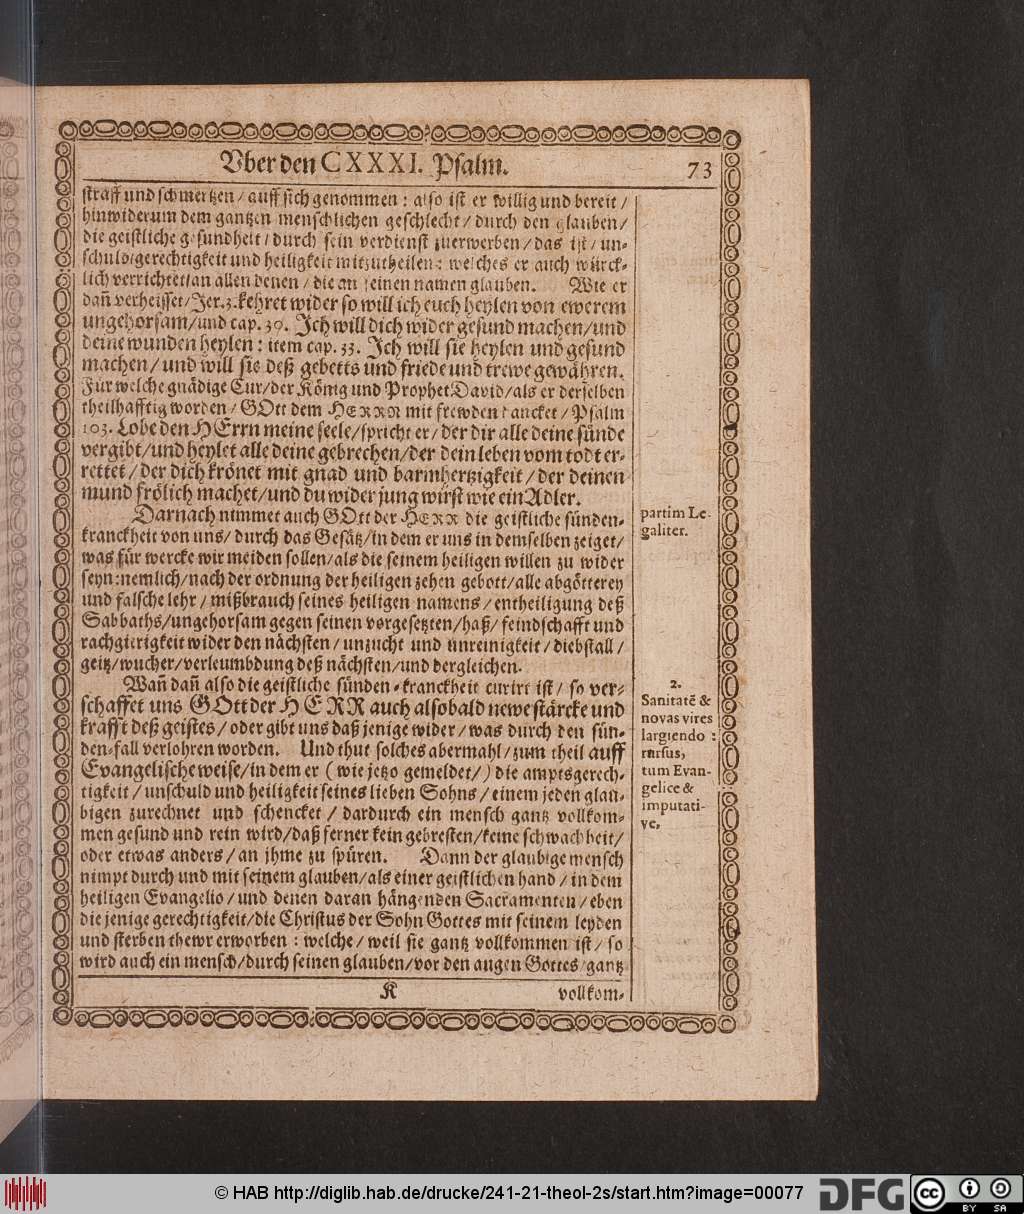 Vber den CXXXI. Psalm.
73
straff und schmertzen / auff sich genommen : also ist er willig und bereit /
hinwiderum dem gantzen menschlichen geschlecht / durch den glauben /
die geistliche gesundheit / durch sein verdienst zuerwerben / das ist / un-
schuld/gerechtigkeit und heiligkeit mitzutheilen : welches er auch würck-
lich verrichtet/an allen denen / die an seinen namen glauben. Wie er
dañ verheisset/Jer.3.kehret wider so will ich euch heylen von ewerem
ungehorsam/und cap. 30. Ich will dich wider gesund machen/und
deine wunden heylen : item cap. 33. Ich will sie heylen und gesund
machen / und will sie deß gebetts und friede und trewe gewähren.
Für welche gnädige Cur/der König und Prophet David/als er derselben
theilhafftig worden / GOtt dem HERRN mit frewden dancket / Psalm
103. Lobe den HErrn meine seele/spricht er / der dir alle deine sünde
vergibt/und heylet alle deine gebrechen/der dein leben vom todt er-
rettet / der dich krönet mit gnad und barmhertzigkeit / der deinen
mund frölich machet/und du wider jung wirst wie ein Adler.
Darnach nimmet auch GOtt der HERR die geistliche sünden-
kranckheit von uns / durch das Gesätz/in dem er uns in demselben zeiget/
was für wercke wir meiden sollen/als die seinem heiligen willen zu wider
seyn:nemlich/nach der ordnung der heiligen zehen gebott/alle abgötterey
und falsche lehr / mißbrauch seines heiligen namens / entheiligung deß
Sabbaths/ungehorsam gegen seinen vorgesetzten/haß/ feindschafft und
rachgierigkeit wider den nächsten / unzucht und unreinigkeit / diebstall /
geitz/wucher/verleumbdung deß nächsten/und dergleichen.
Wañ dañ also die geistliche sünden-kranckheit curirt ist / so ver-
schaffet uns GOtt der HERR auch alsobald newe stärcke und
krafft deß geistes / oder gibt uns daß jenige wider / was durch den sün-
den-fall verlohren worden. Und thut solches abermahl / zum theil auff
Evangelische weise/in dem er ( wie jetzo gemeldet / ) die amptsgerech-
tigkeit / unschuld und heiligkeit seines lieben Sohns / einem jeden glau-
bigen zurechnet und schencket / dardurch ein mensch gantz vollkom-
men gesund und rein wird/daß ferner kein gebresten/keine schwachheit/
oder etwas anders / an jhme zu spüren. Dann der glaubige mensch
nimpt durch und mit seinem glauben/als einer geistlichen hand / in dem
heiligen Evangelio / und denen daran hängenden Sacramenten / eben
die jenige gerechtigkeit/die Christus der Sohn Gottes mit seinem leyden
und sterben thewr erworben : welche / weil sie gantz vollkommen ist / so
wird auch ein mensch/durch seinen glauben/vor den augen Gottes / gantz
K
vollkom-
partim Le-
galiter.
2.
Sanitatẽ &
novas vires
largiendo :
rursus,
tum Evan-
gelice &
imputati-
ve,
© HAB http://diglib.hab.de/drucke/241-21-theol-2s/start.htm?image=00077
DFG
cc
BY
SA